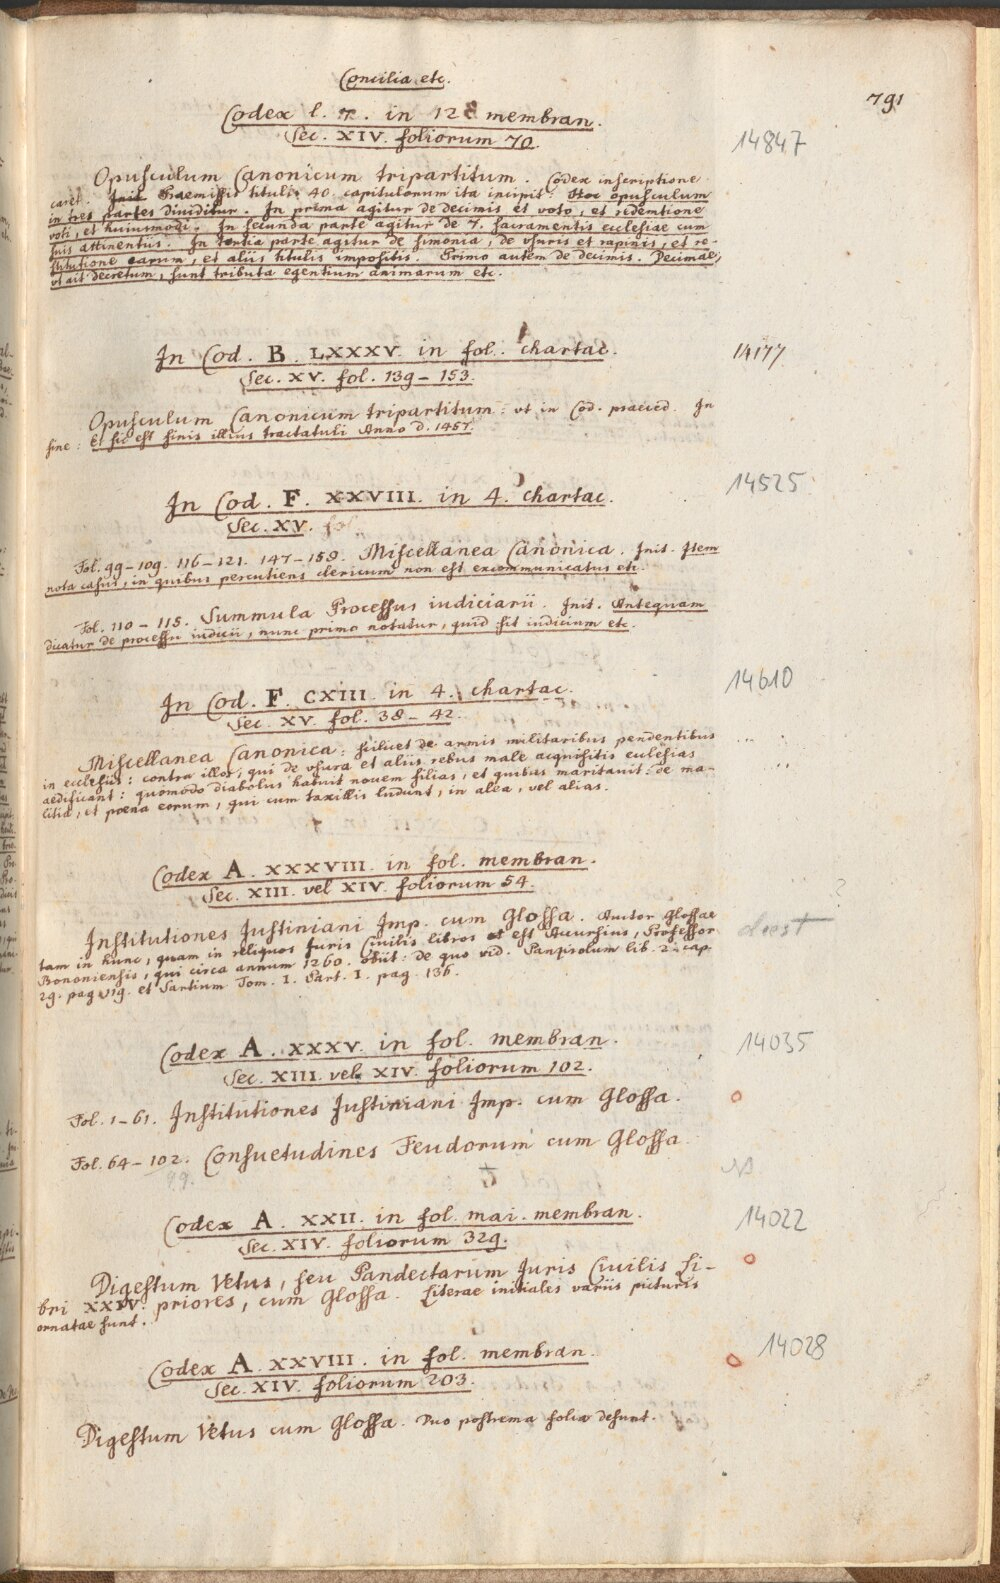 Concilia etc.
791
Codex l. 7. in 128 membran.
Sec. XIV. foliorum 70.
14847
Opusculum Canonicum tripartitum. Codex inscriptione
caret. Init. Praemissis titulis 40. capitulorum ita incipit: Hoc opusculum
in tres partes dividitur. In prima agitur de decimis et voto, et redemtione
voti, et huiusmodi. In secunda parte agitur de 7. sacramentis ecclesiae cum
suis attinentiis. In tertia parte agitur de simonia, de vsuris et rapinis, et re-
stitutione earum, et aliis titulis impositis. Primo autem de decimis. Decimae,
vt ait decretum, sunt tributa egentium animarum etc.
In Cod. B. LXXXV. in fol. chartac.
14177
Sec. XV. fol. 139–153.
Opusculum Canonicum tripartitum: vt in Cod. praeced. In
fine: Et sic est finis illius tractatuli Anno D. 1457.
In Cod. F. XXVIII. in 4. chartac.
14525
Sec. XV.
Fol. 99–109. 116–121. 147–158. Miscellanea Canonica. Init. Item
nota casus, in quibus percutiens clericum non est excommunicatus etc.
Fol. 110–115. Summula Processus iudiciarii. Init. Antequam
dicatur de processu iudicii, nunc primo notatur, quid sit iudicium etc.
In Cod. F. CXIII. in 4. chartac.
14610
Sec. XV. fol. 38–42.
Miscellanea Canonica: scilicet de armis militaribus pendentibus
in ecclesiis: contra illos, qui de vsura et aliis rebus male acquisitis ecclesias
aedificant: quomodo diabolus habuit nouem filias, et quibus maritauit: de ma-
litia, et poena eorum, qui cum taxillis ludunt, in alea, vel alias.
Codex A. XXXVIII. in fol. membran.
Sec. XIII. vel XIV. foliorum 54.
?
Institutiones Justiniani Imp. cum Glossa. Auctor Glossae
deest
tam in hunc, quam in reliquos Juris Ciuilis libros est Accursius, Professor
Bononiensis, qui circa annum 1260. obiit: de quo vid. Panzirolum lib. 2. cap.
29. pag. 119. et Sartium Tom. I. Part. I. pag. 136.
Codex A. XXXV. in fol. membran.
14035
Sec. XIII. vel XIV. foliorum 102.
Fol. 1–61. Institutiones Justiniani Imp. cum Glossa.
Fol. 64–102. Consuetudines Feudorum cum Glossa.
99.
NB.
Codex A. XXII. in fol. mai. membran.
14022
Sec. XIV. foliorum 329.
Digestum Vetus, seu Pandectarum Juris Ciuilis Li-
bri XXIV. priores, cum Glossa. Literae initiales variis picturis
ornatae sunt.
Codex A. XXVIII. in fol. membran.
14028
Sec. XIV. foliorum 203.
Digestum Vetus cum Glossa. Duo postrema folia desunt.